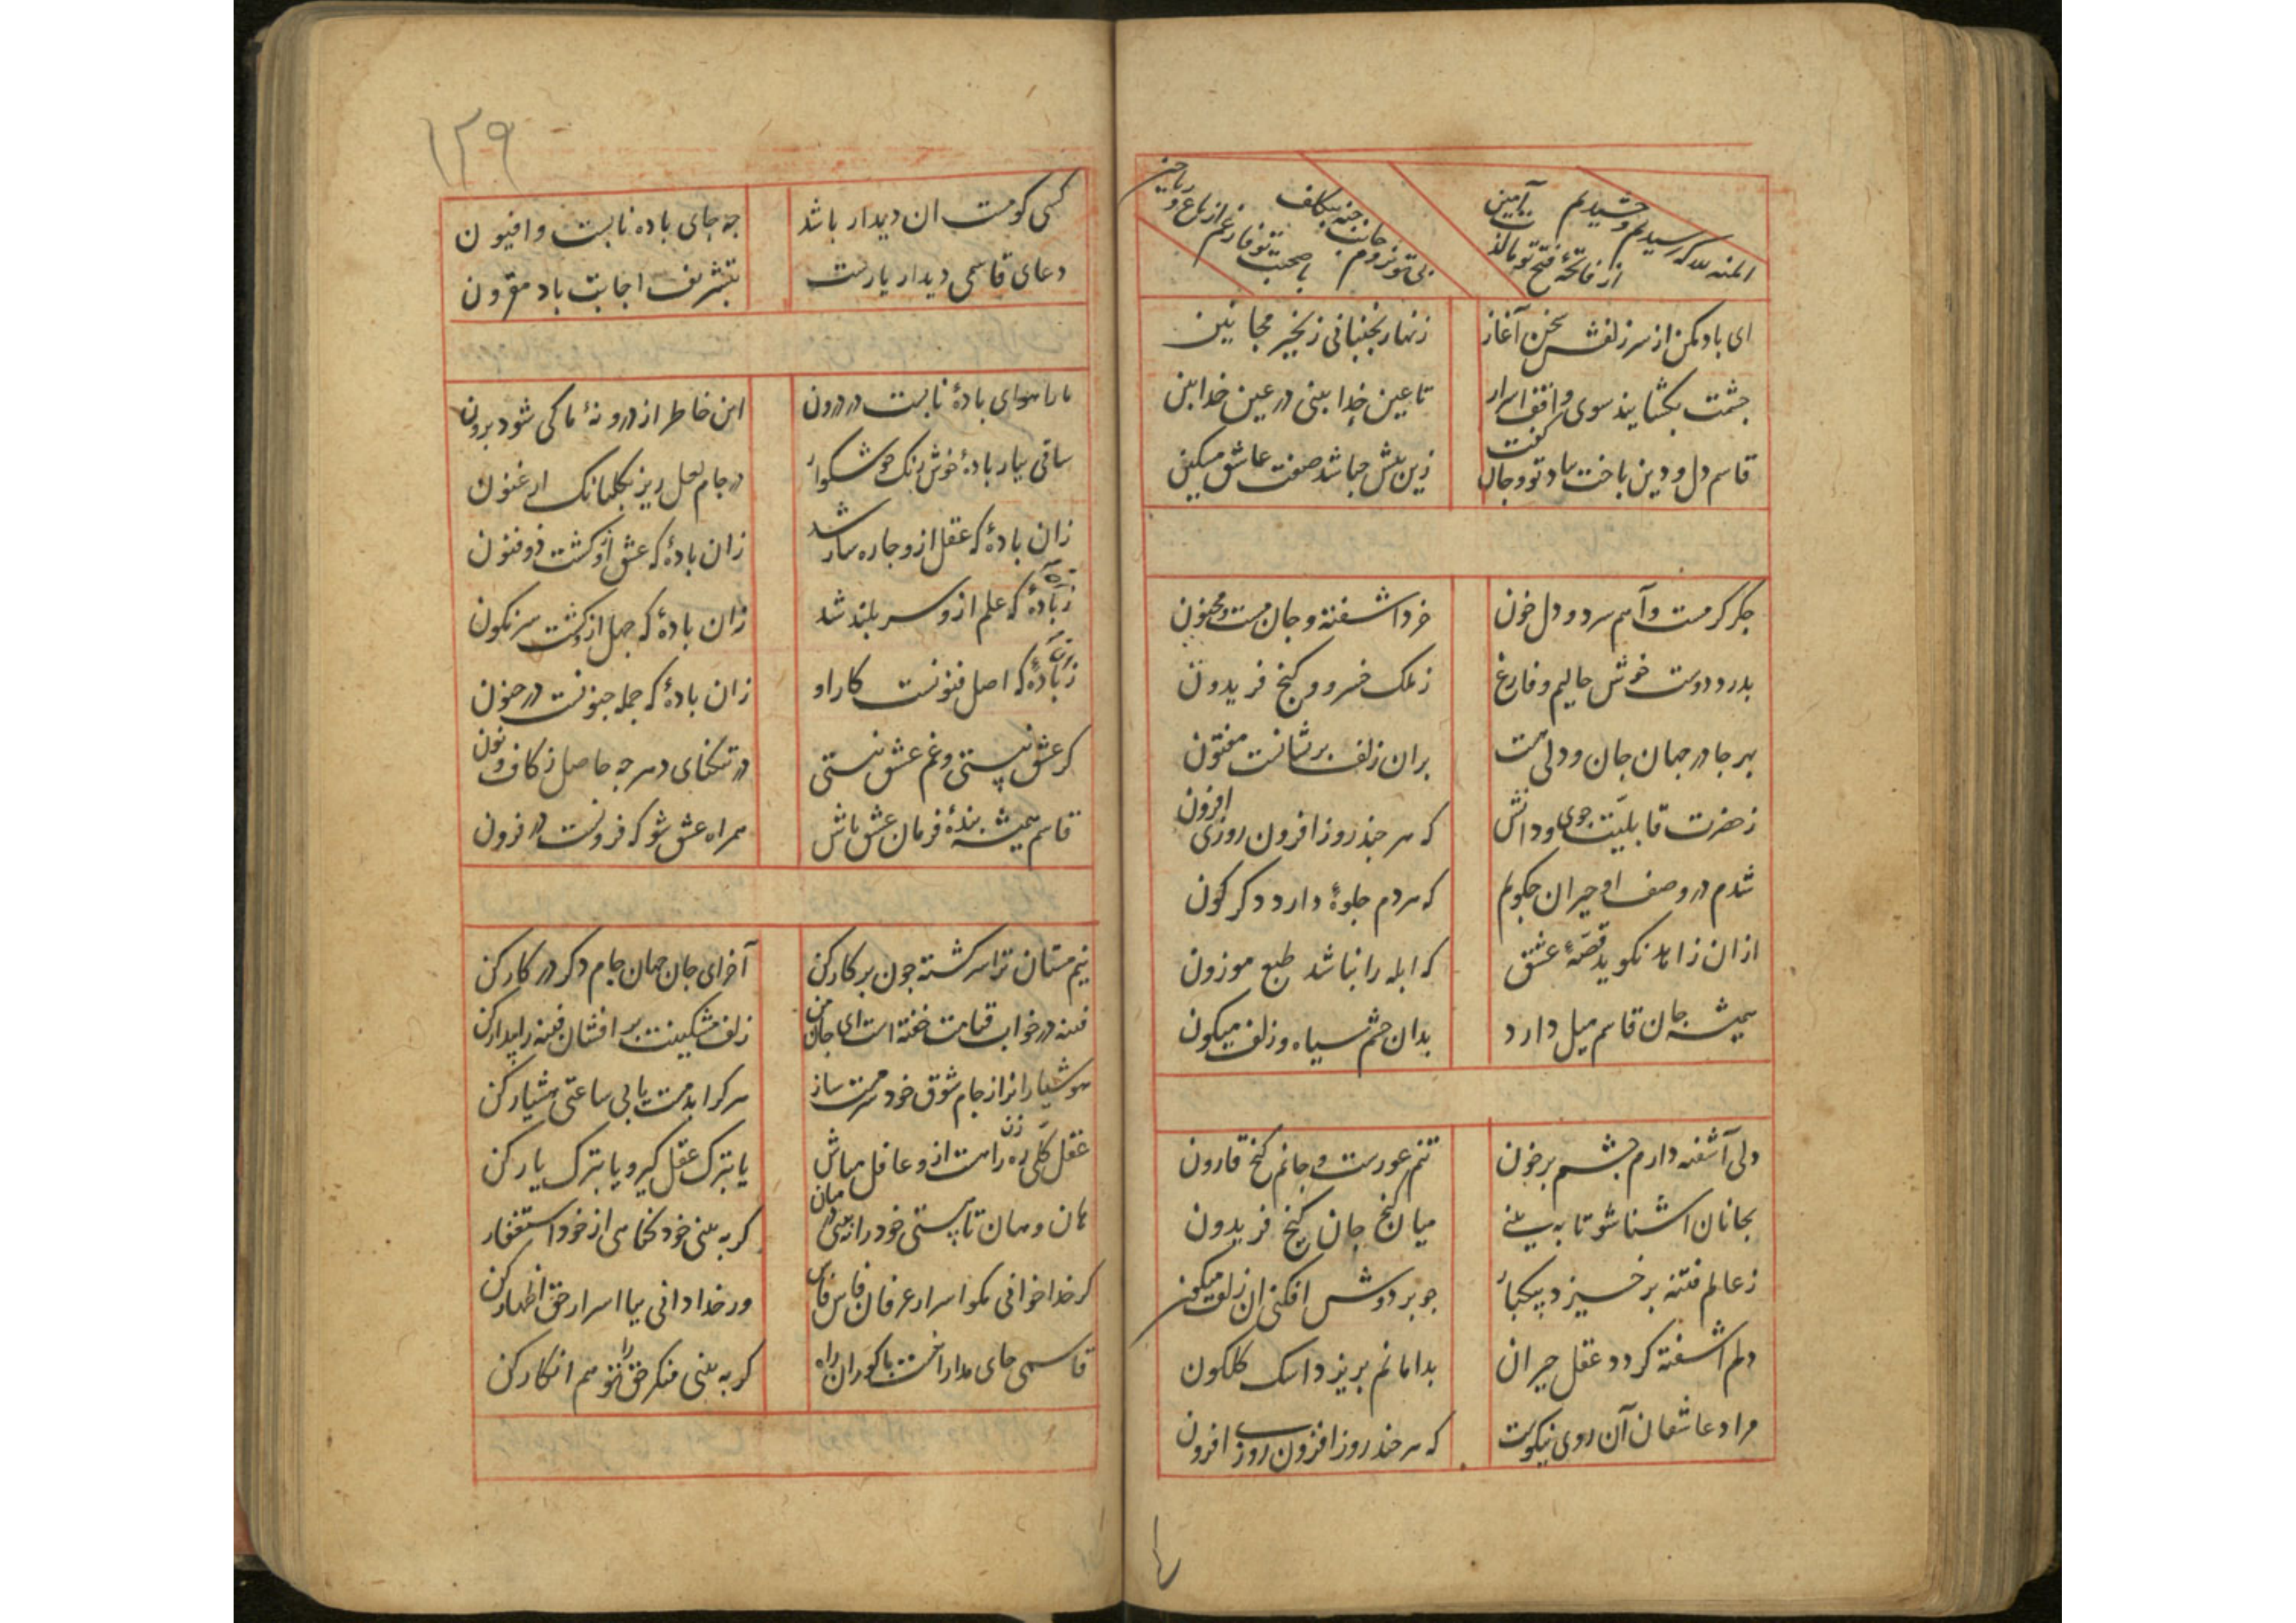 المنه لله که رسیدیم و چشیدیم
از فاتحهٔ فتح تو مالذت آمین
بی تو نروم جانب جنه بتکلف
با صحبت تو فارغم از باغ و ریاحین
ای باد مکن از سر زلفش سخن آغاز
زنهار نجنبانی زنجیر مجانین
چشمت بکشایند سوی واقف اسرار
تا عین خدا بینی در عین خدا بین
قاسم دل و دین باخت بیاد تو و جان گفت
زین بیش چباشد صفت عاشق مسکین
جکر کرمست و آهم سرد و دل خون
خرد اشفته و جان مست و مجنون
بدرد دوست خوش حالیم و فارغ
ز ملک خسرو و کنج فریدون
بهر جا در جهان جان و دلی هست
بران زلف پریشانست مفتون
ز حضرت قابلیت جوی و دانش
که هر چند روز افزون روزی افزون
شدم در وصف او حیران چکویم
که هر دم جلوهٔ دارد دکر کون
ازان زاهد نکوید قصهٔ عشق
که ابله را نباشد طبع موزون
همیشه جان قاسم میل دارد
بدان چشم سیاه و زلف میکون
دلی آشفته دارم چشم پرخون
تنم عورست و جانم کنج قارون
بجانان اشنا شو تا به بینی
میان کنج جان کنج فریدون
ز عالم فتنه برخیزد بیکبار
چو بر دوش افکنی ان زلف میکون
دلم اشفته کردد عقل حیران
بدامانم بریزد اشک کلکون
مراد عاشقان آن روی نیکوست
که هر چند روز افزون روزی افزون
۱۲۹
کسی کو مست ان دیدار باشد
چه جای باده نابست و افیون
دعای قاسمی دیدار یارست
بتشریف اجابت باد مقرون
ما را هوای بادهٔ نابست در درون
این خاطر از درونهٔ ما کی شود برون
ساقی بیار بادهٔ خوش رنک خوشکوار
در جام لعل ریز بکلبانک ارغنون
زان بادهٔ که عقل ازو چاره ساز شد
زان بادهٔ که عشق ازو کشت ذوفنون
زان بادهٔ که علم ازو سر بلند شد
زان بادهٔ که جهل ازو کشت سرنکون
زان بادهٔ که اصل فنونست کار او
زان بادهٔ که جمله جنونست در جنون
کر عشق نیستی و غم عشق نیستی
در تنکنای دهر چه حاصل ز کاف و نون
قاسم همیشه بندهٔ فرمان عشق باش
همراه عشق شو که فزونست در فزون
نیم مستان ترا سر کشته چون پرکار کن
آخر ای جان جهان جام دکر در کار کن
فتنه در خواب قیامت خفته است ای جان من
زلف مشکینت بر افشان فتنه را بیدار کن
هوشیارانرا ز جام شوق خود سرمست ساز
هر کرا بدمست یابی ساعتی هشیار کن
عقل کلی ره زن راهست ازو غافل مباش
یا بترک عقل کیر و یا بترک یار کن
هان و هان تا هستی خود را نه بینی در میان
کر به بینی خود کناهی از خود استغفار کن
کر خدا خوانی مکو اسرار عرفان فاش فاش
ور خدا دانی بیا اسرار حق اظهار کن
قاسمی جای مدارا نیست با کوران راه
کر به بینی منکر حق را تو هم انکار کن